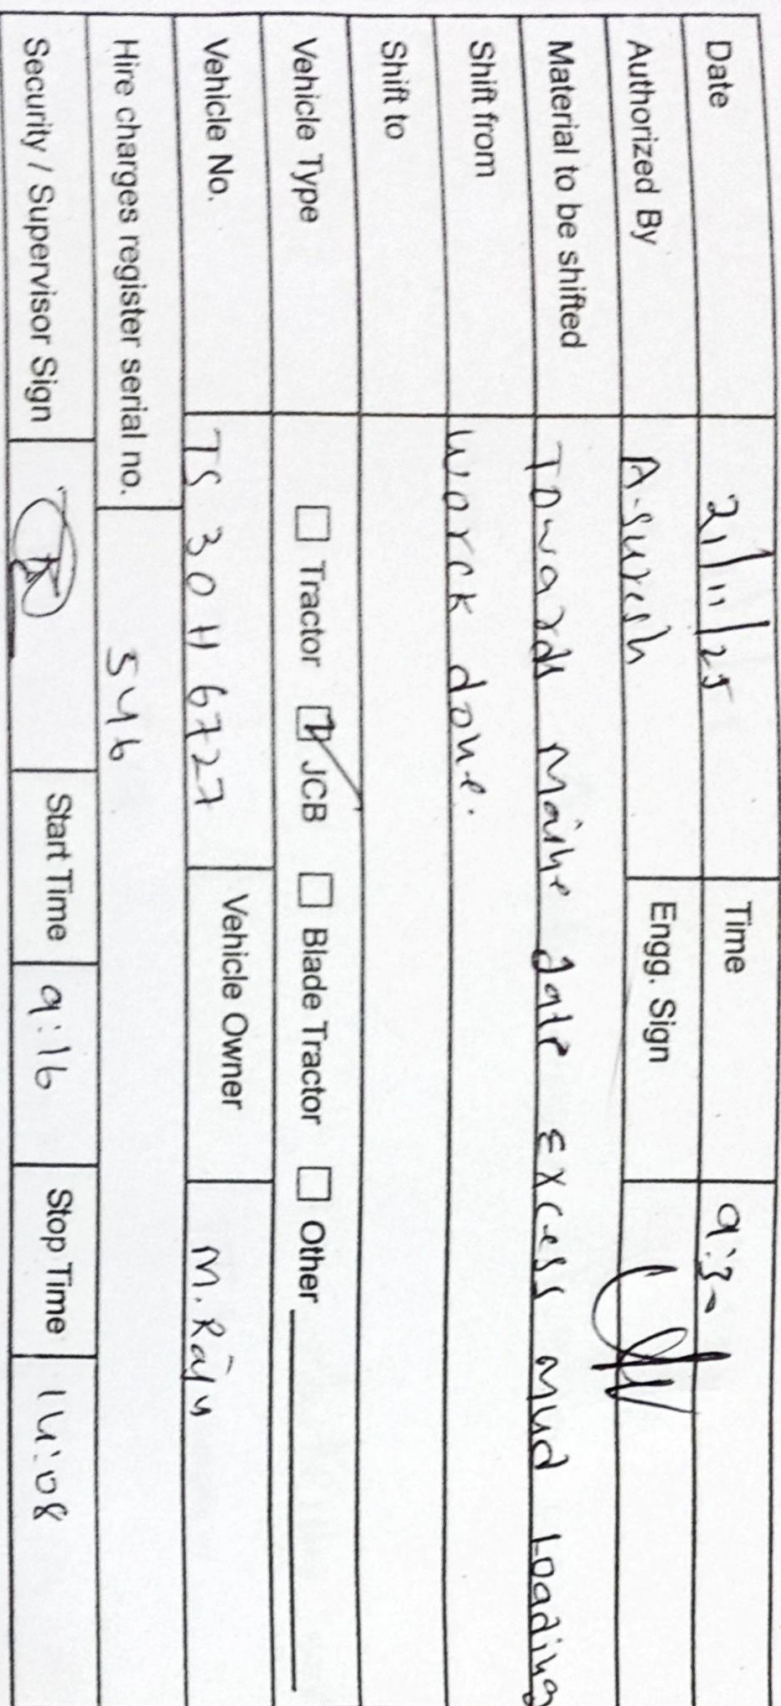 Date 21/11/25 Time 9:30
Authorized By A. Suresh Engg. Sign
Material to be shifted Towards Maine gate Excess mud Loading
Shift from worck done.
Shift to
Vehicle Type Tractor JCB Blade Tractor Other
Vehicle No. TS 30 H 6727 Vehicle Owner M. Raju
Hire charges register serial no. 546
Security / Supervisor Sign Start Time 9:16 Stop Time 14:08